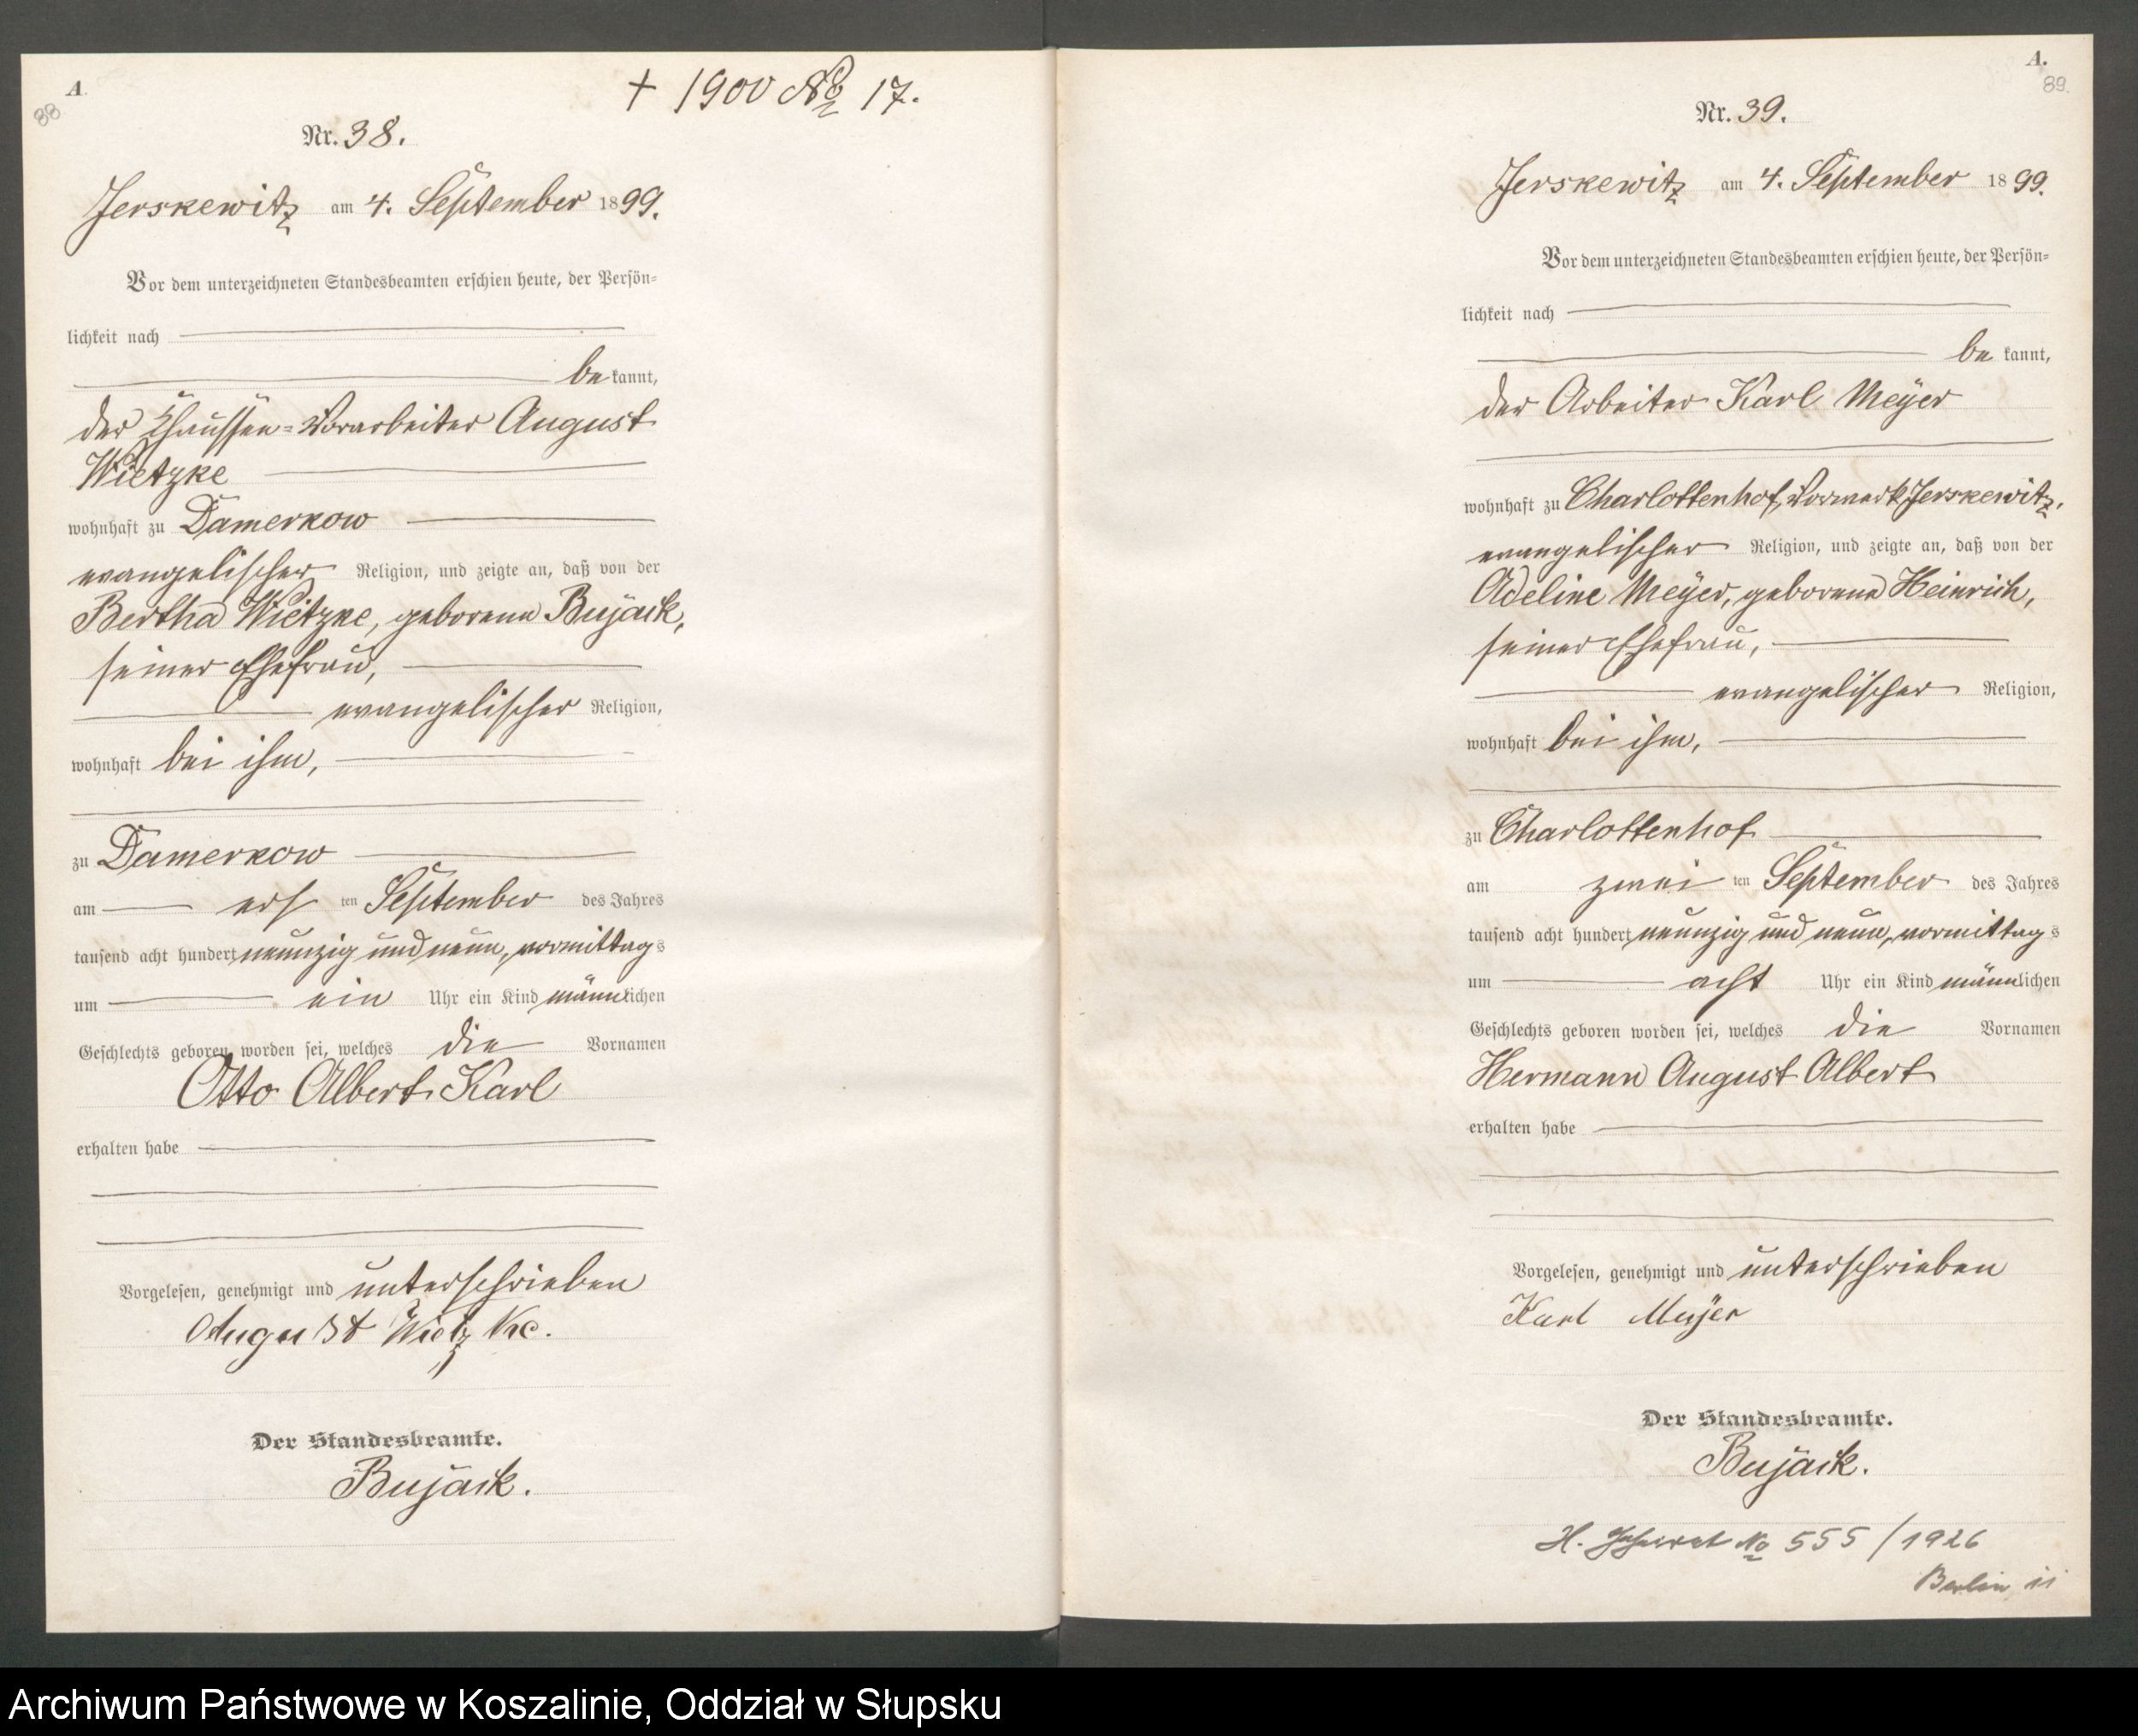 A
88
+ 1900 No 17.
Nr. 38.
Jerskewitz am 4. September 1899.
Vor dem unterzeichneten Standesbeamten erschien heute, der Persön-
lichkeit nach
bekannt,
der Chaussee-Vorarbeiter August
Wietzke
wohnhaft zu Damerkow
evangelischer Religion, und zeigte an, daß von der
Bertha Wietzke, geborene Bujack,
seiner Ehefrau,
evangelischer Religion,
wohnhaft bei ihm,
zu Damerkow
am ersten September des Jahres
tausend acht hundert neunzig und neun, vormittags
um ein Uhr ein Kind männlichen
Geschlechts geboren worden sei, welches die Vornamen
Otto Albert Karl
erhalten habe
Vorgelesen, genehmigt und unterschrieben
August Wietzke.
Der Standesbeamte.
Bujack.
A.
89.
Nr. 39.
Jerskewitz am 4. September 1899.
Vor dem unterzeichneten Standesbeamten erschien heute, der Persön-
lichkeit nach
bekannt,
der Arbeiter Karl Meyer
wohnhaft zu Charlottenhof, Vorwerk Jerskewitz,
evangelischer Religion, und zeigte an, daß von der
Adeline Meyer, geborene Heinrich,
seiner Ehefrau,
evangelischer Religion,
wohnhaft bei ihm,
zu Charlottenhof
am zweiten September des Jahres
tausend acht hundert neunzig und neun, vormittags
um acht Uhr ein Kind männlichen
Geschlechts geboren worden sei, welches die Vornamen
Hermann August Albert
erhalten habe
Vorgelesen, genehmigt und unterschrieben
Karl Meyer
Der Standesbeamte.
Bujack.
H. No 555/1926
Berlin
Archiwum Państwowe w Koszalinie, Oddział w Słupsku